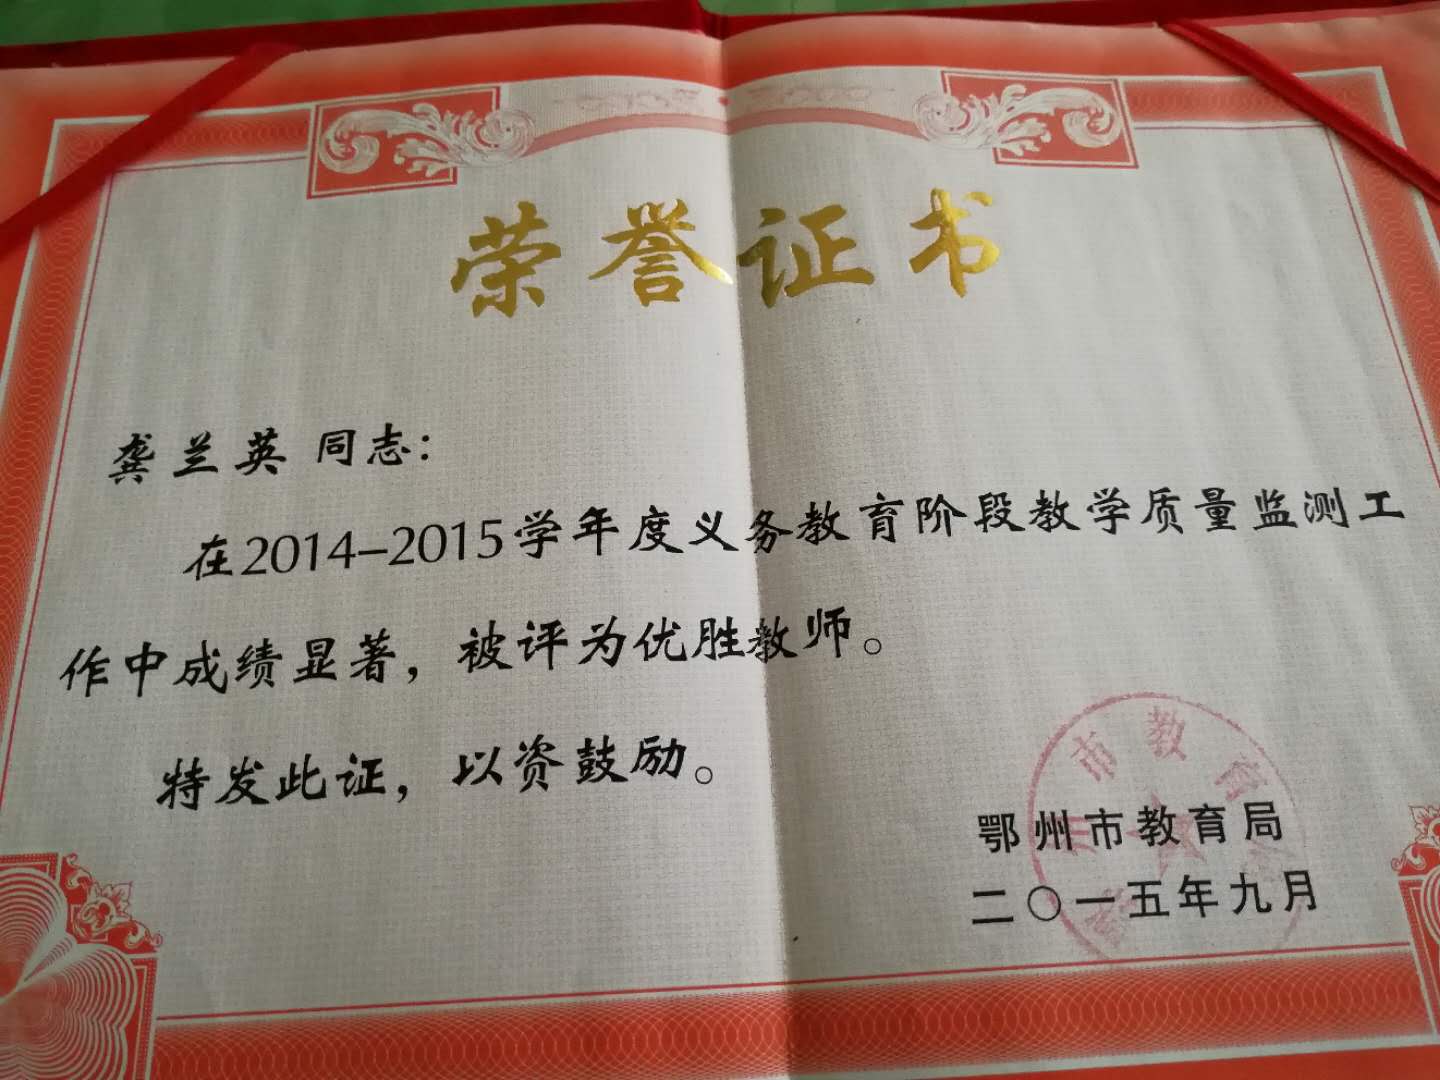 荣誉证书
龚兰英 同志：
在2014-2015学年度义务教育阶段教学质量监测工
作中成绩显著，被评为优胜教师。
特发此证，以资鼓励。
鄂州市教育局
二〇一五年九月
鄂州市教育局